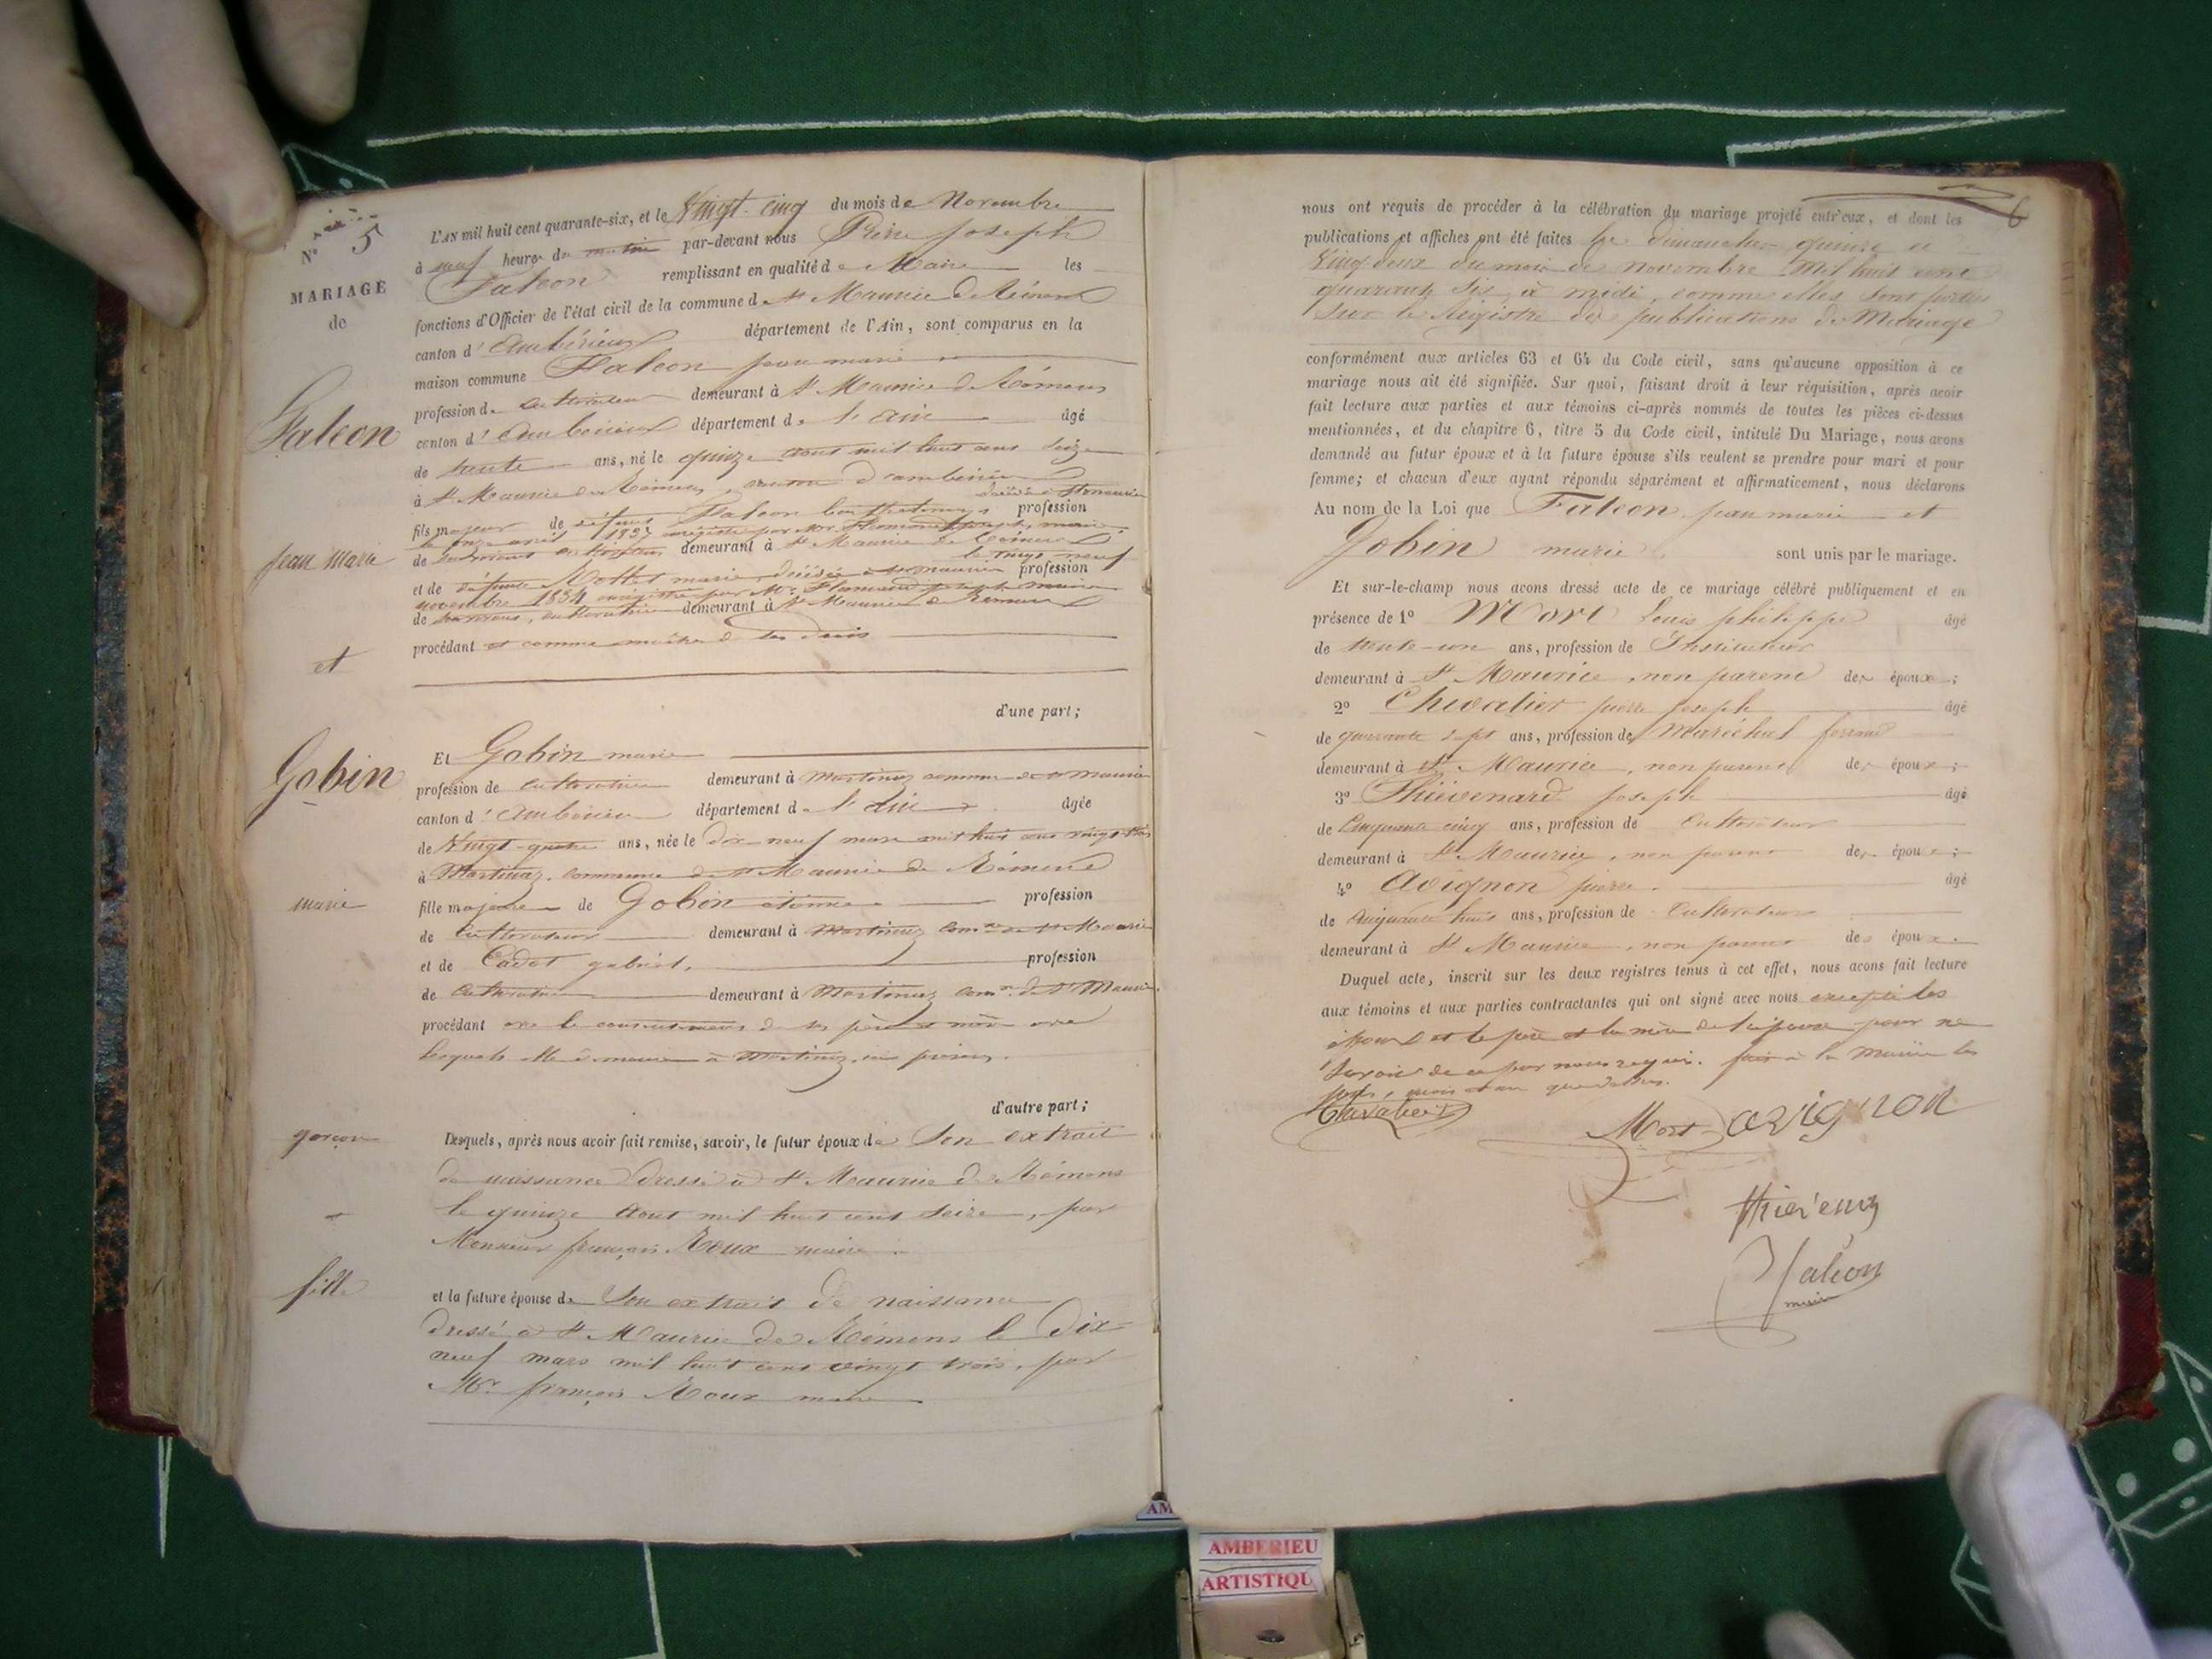 N° 5
MARIAGE
de
Falcon
jean marie
et
Gobin
marie
garçon
fille
L'AN mil huit cent quarante-six, et le Vingt-cinq du mois de Novembre
à neuf heures du matin par-devant nous Joseph
Falcon remplissant en qualité de Maire les
fonctions d'Officier de l'état civil de la commune de St Maurice de Rémens
canton d'Ambérieux département de l'Ain, sont comparus en la
maison commune Falcon jean marie
profession de cultivateur demeurant à St Maurice de Rémens
canton d'Ambérieux département de l'ain âgé
de trente ans, né le quinze aout mil huit cent seize
à St Maurice de Rémens, canton d'ambérieux
fils majeur de défunt Falcon barthelemy décédé à St maurice profession
le onze avril 1837
de cultivateur demeurant à St Maurice de Rémens
et de défunte Mollet marie, décédée à St maurice le vingt neuf profession
novembre 1834
de cultivatrice demeurant à St Maurice de Rémens
procédant et comme maître de ses droits
d'une part;
Et Gobin marie
profession de cultivatrice demeurant à Martinaz commune de St maurice
canton d'Ambérieux département de l'Ain âgée
de Vingt-quatre ans, née le dix-neuf mars mil huit cent vingt-trois
à Martinaz, commune de St Maurice de Rémens
fille majeure de Gobin étienne profession
de cultivateur demeurant à Martinaz comne de St Maurice
et de Cadot gabriel, profession
de cultivatrice demeurant à Martinaz comne de St Maurice
procédant avec le consentement de ses père et mère avec
lesquels elle demeure à Martinaz,
d'autre part;
Lesquels, après nous avoir fait remise, savoir, le futur époux de Son extrait
de naissance dressé à St Maurice de Rémens
le quinze Aout mil huit cent seize, par
Monsieur françois Roux maire
et la future épouse de Son extrait de naissance
dressé à St Maurice de Rémens le Dix-
neuf mars mil huit cent vingt trois, par
Mr françois Roux maire
6
nous ont requis de procéder à la célébration du mariage projeté entr'eux, et dont les
publications et affiches ont été faites les dimanches quinze et
Vingt deux du mois de novembre Mil huit cent
quarante Six, à midi, comme elles sont portées
sur le Registre des publications de Mariage
conformément aux articles 63 et 64 du Code civil, sans qu'aucune opposition à ce
mariage nous ait été signifiée. Sur quoi, faisant droit à leur réquisition, après avoir
fait lecture aux parties et aux témoins ci-après nommés de toutes les pièces ci-dessus
mentionnées, et du chapitre 6, titre 5 du Code civil, intitulé Du Mariage, nous avons
demandé au futur époux et à la future épouse s'ils veulent se prendre pour mari et pour
femme; et chacun d'eux ayant répondu séparément et affirmativement, nous déclarons
Au nom de la Loi que Falcon jean marie et
Gobin marie sont unis par le mariage.
Et sur-le-champ nous avons dressé acte de ce mariage célébré publiquement et en
présence de 1° Mort Louis philippe âgé
de trente-un ans, profession de Instituteur
demeurant à St Maurice, non parent des époux;
2° Chevalier pierre joseph âgé
de quarante sept ans, profession de Maréchal ferrand
demeurant à St Maurice, non parent des époux;
3° Thiévenard joseph âgé
de Cinquante cinq ans, profession de Cultivateur
demeurant à St Maurice, non parent des époux;
4° Avignon pierre âgé
de Cinquante huit ans, profession de Cultivateur
demeurant à St Maurice, non parent des époux.
Duquel acte, inscrit sur les deux registres tenus à cet effet, nous avons fait lecture
aux témoins et aux parties contractantes qui ont signé avec nous excepté les
époux et le père et la mère de l'épouse pour ne
savoir de ce par nous requis. fait à la Mairie les
jour, mois et an que dessus.
Chevalier Mort avignon
Falcon
maire
AM
AMBERIEU
ARTISTIQU